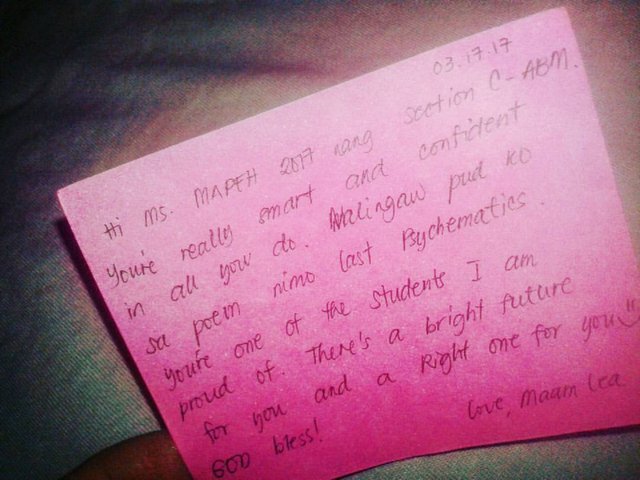 03.17.17
Hi Ms. MAPEH 2017 nang section C-ABM.
You're really smart and confident
in all you do. Nalingaw pud ko
sa poem nimo last Psychematics.
you're one of the students I am
proud of. There's a bright future
for you and a Right one for you
GOD bless!
love, Maam Lea